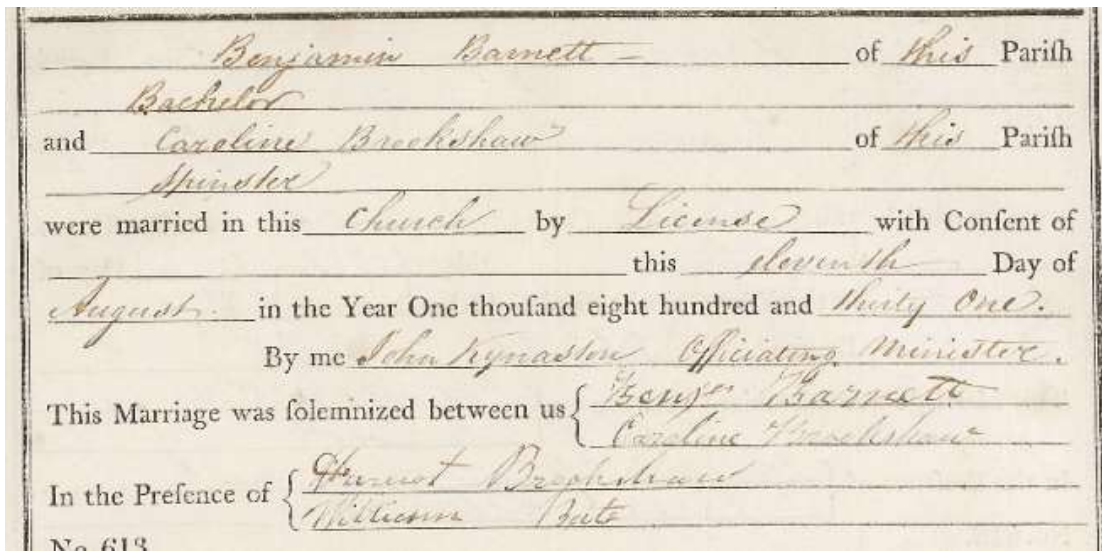 Benjamin Barnett — of this Pariſh
Bachelor
and Caroline Brookshaw of this Pariſh
Spinster
were married in this Church by License with Conſent of
this eleventh Day of
August in the Year One thouſand eight hundred and thirty one.
By me John Kynaston Officiating Minister.
This Marriage was ſolemnized between us { Benjn Barnett
Caroline Brookshaw
In the Preſence of { Harriot Brookshaw
William Bate
No 613